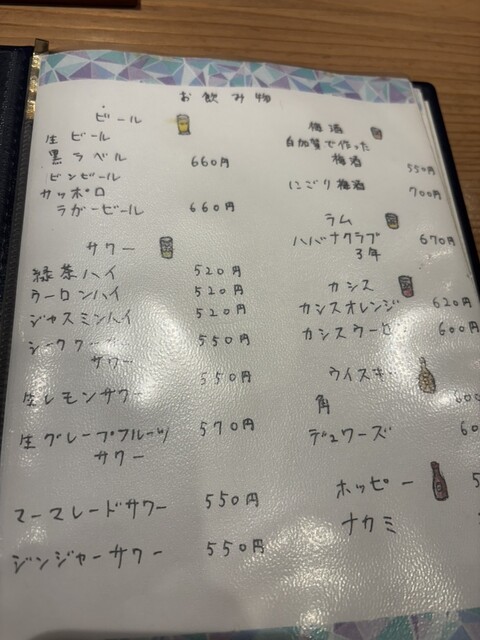 お飲み物
ビール
生ビール
黒ラベル 660円
ビンビール
サッポロ
ラガービール 660円
サワー
緑茶ハイ 520円
ウーロンハイ 520円
ジャスミンハイ 520円
シークワーサー 550円
サワー
生レモンサワー 550円
生グレープフルーツ 570円
サワー
マーマレードサワー 550円
ジンジャーサワー 550円
梅酒
白加賀で作った
梅酒 550円
にごり梅酒 700円
ラム
ハバナクラブ 670円
3年
カシス
カシスオレンジ 620円
カシスウーロン 600円
ウイスキー
角 600
デュワーズ 60
ホッピー 5
ナカミ